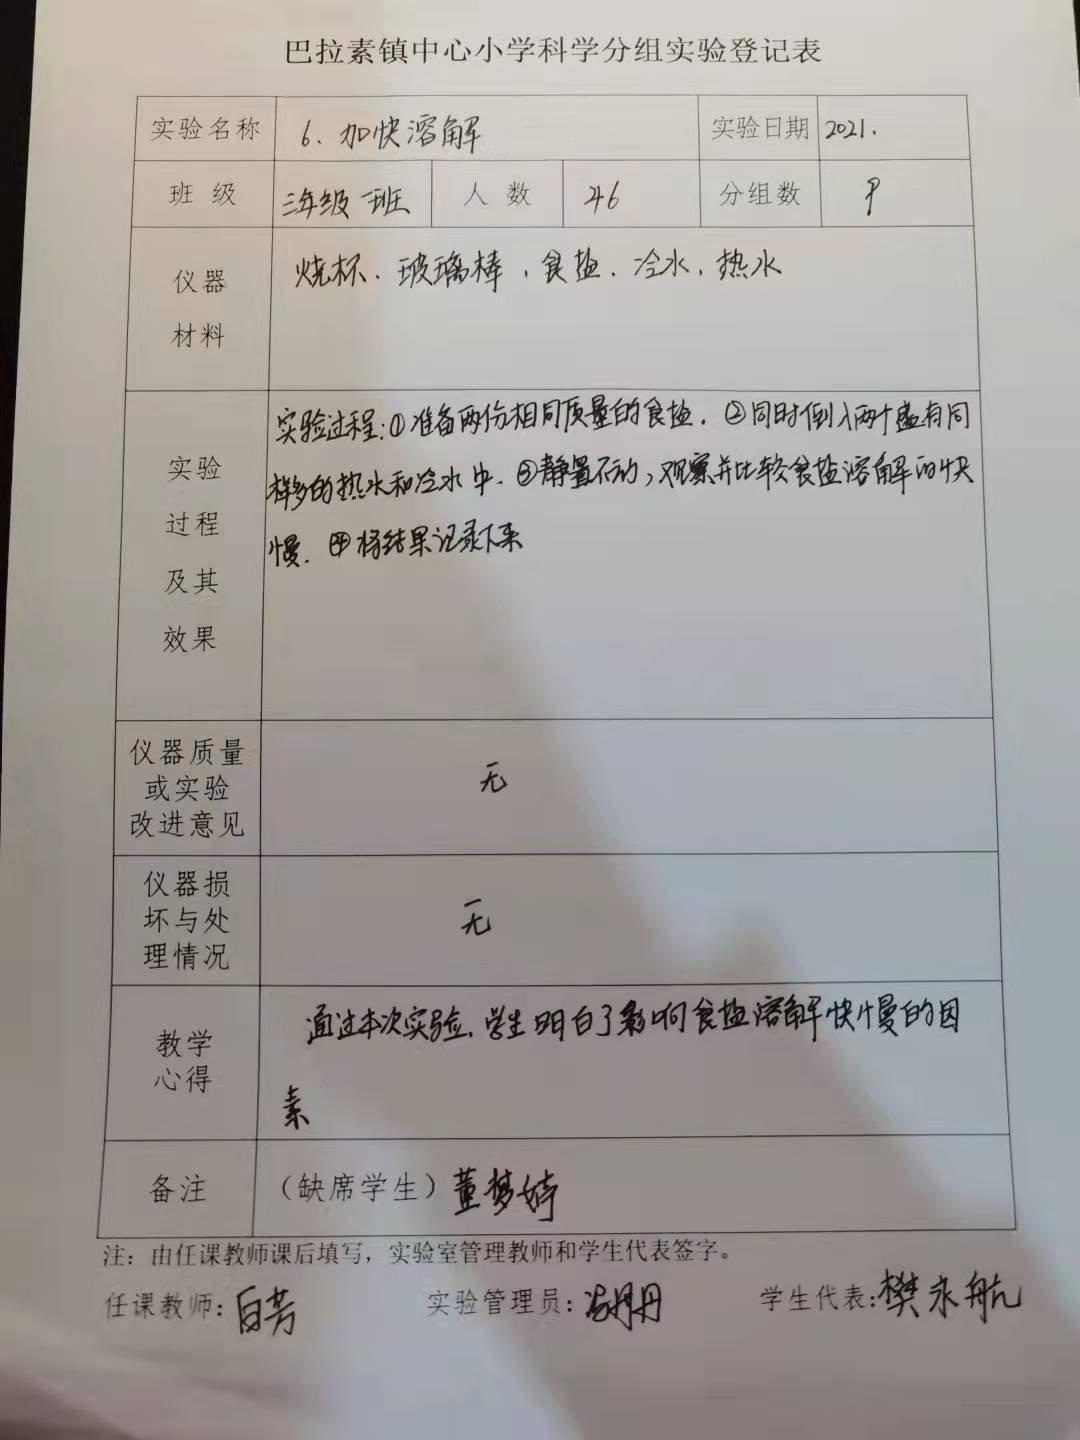 巴拉素镇中心小学科学分组实验登记表
实验名称 6、加快溶解 实验日期 2021.
班 级 三年级一班 人 数 46 分组数
仪器 烧杯、玻璃棒、食盐、冷水、热水
材料
实验过程:①准备两份相同质量的食盐. ②同时倒入两个盛有同
实验 样多的热水和冷水中. ③静置不动,观察并比较食盐溶解的快
过程 慢. ④将结果记录下来
及其
效果
仪器质量
或实验 无
改进意见
仪器损
坏与处 无
理情况
通过本次实验,学生明白了影响食盐溶解快慢的因
教学
心得
素
备注 (缺席学生)董梦婷
注:由任课教师课后填写,实验室管理教师和学生代表签字。
任课教师:白芳 实验管理员: 学生代表:樊永航